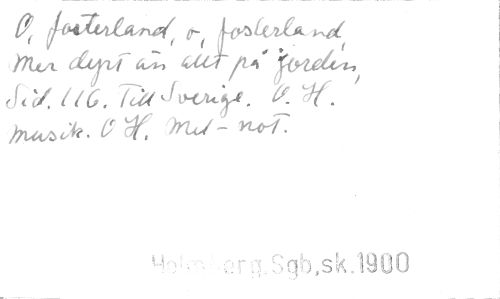 O, fosterland, o, fosterland,
mer dyrt än allt på jorden,
Sid. 116. Till Sverige. O. H.
musik. O H. Mel-not.
Holmberg.Sgb,sk.1900